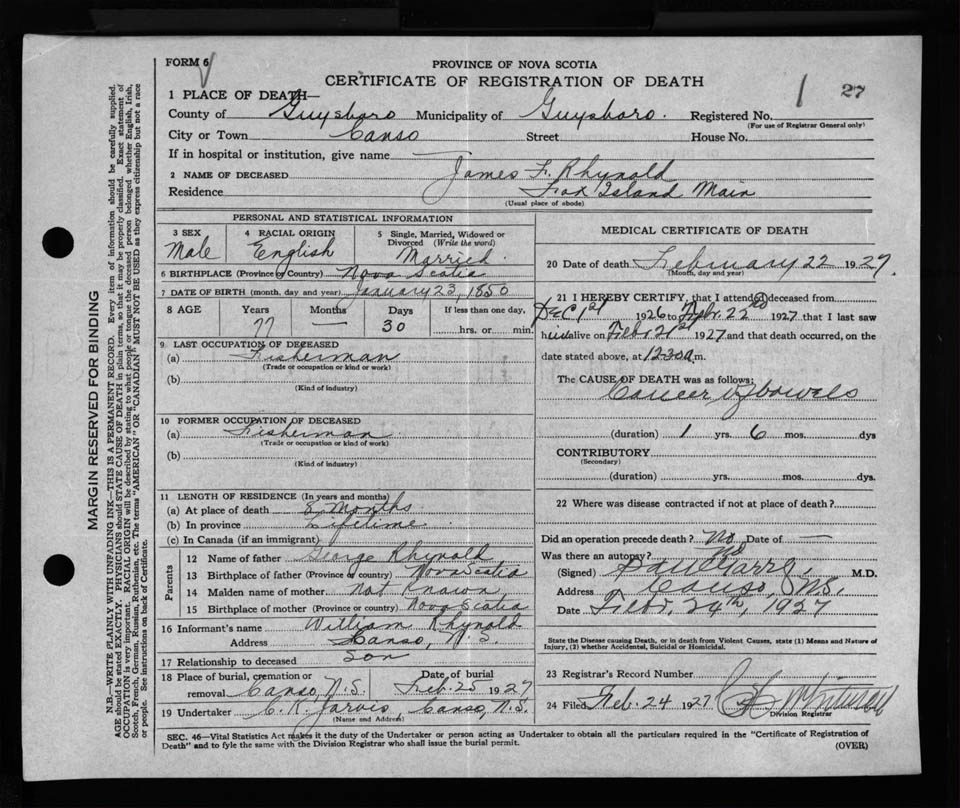 FORM 6
PROVINCE OF NOVA SCOTIA
CERTIFICATE OF REGISTRATION OF DEATH
1 27
1 PLACE OF DEATH—
County of Guysboro Municipality of Guysboro. Registered No.
(For use of Registrar General only)
City or Town Canso Street House No.
If in hospital or institution, give name
2 NAME OF DECEASED James F. Rhynold
Residence Fox Island Main
(Usual place of abode)
PERSONAL AND STATISTICAL INFORMATION
3 SEX 4 RACIAL ORIGIN 5 Single, Married, Widowed or Divorced (Write the word)
Male English Married.
6 BIRTHPLACE (Province or Country) Nova Scotia
7 DATE OF BIRTH (month, day and year) January 23, 1850
8 AGE Years Months Days If less than one day,
77 — 30 hrs. or min.
9 LAST OCCUPATION OF DECEASED
(a) Fisherman
(Trade or occupation or kind or work)
(b)
(Kind of industry)
10 FORMER OCCUPATION OF DECEASED
(a) Fisherman
(Trade or occupation or kind or work)
(b)
(Kind of industry)
11 LENGTH OF RESIDENCE (In years and months)
(a) At place of death Months
(b) In province Lifetime
(c) In Canada (if an immigrant)
Parents
12 Name of father George Rhynold
13 Birthplace of father (Province or country) Nova Scotia
14 Malden name of mother Not Known
15 Birthplace of mother (Province or country) Nova Scotia
16 Informant's name William Rhynold
Address Canso, N.S.
17 Relationship to deceased Son
18 Place of burial, cremation or removal Canso, N.S. Date of burial Feb. 25 1927
19 Undertaker C. K. Jarvis Canso, N.S.
(Name and Address)
MEDICAL CERTIFICATE OF DEATH
20 Date of death February 22 1927.
(Month, day and year)
21 I HEREBY CERTIFY, that I attended deceased from
Dec 1st 1926 to Febr. 22nd 1927 that I last saw
him alive on Febr 21st 1927 and that death occurred, on the
date stated above, at 12.30 a m.
The CAUSE OF DEATH was as follows:
Cancer of bowels
(duration) 1 yrs. 6 mos. dys
CONTRIBUTORY
(Secondary)
(duration) yrs. mos. dys
22 Where was disease contracted if not at place of death?
Did an operation precede death? No Date of —
Was there an autopsy? No
(Signed) M.D.
Address Canso, N.S.
Date Febr. 24th, 1927
State the Disease causing Death, or in death from Violent Causes, state (1) Means and Nature of
Injury, (2) whether Accidental, Suicidal or Homicidal.
23 Registrar's Record Number
24 Filed Feb. 24 1927 Whitman
Division Registrar
SEC. 46—Vital Statistics Act makes it the duty of the Undertaker or person acting as Undertaker to obtain all the particulars required in the "Certificate of Registration of
Death" and to fyle the same with the Division Registrar who shall issue the burial permit. (OVER)
MARGIN RESERVED FOR BINDING
N.B.—WRITE PLAINLY WITH UNFADING INK—THIS IS A PERMANENT RECORD. Every item of information should be carefully supplied.
AGE should be stated EXACTLY. PHYSICIANS should STATE CAUSE OF DEATH in plain terms, so that it may be properly classified. Exact statement of
OCCUPATION is very important. RACIAL ORIGIN will be described by stating to what people or tongue the deceased person belonged whether English, Irish,
Scotch, French, German, Russian, Ruthenian, etc. The terms "AMERICAN" OR "CANADIAN" MUST NOT BE USED as they express citizenship but not a race
or people. See instructions on back of Certificate.